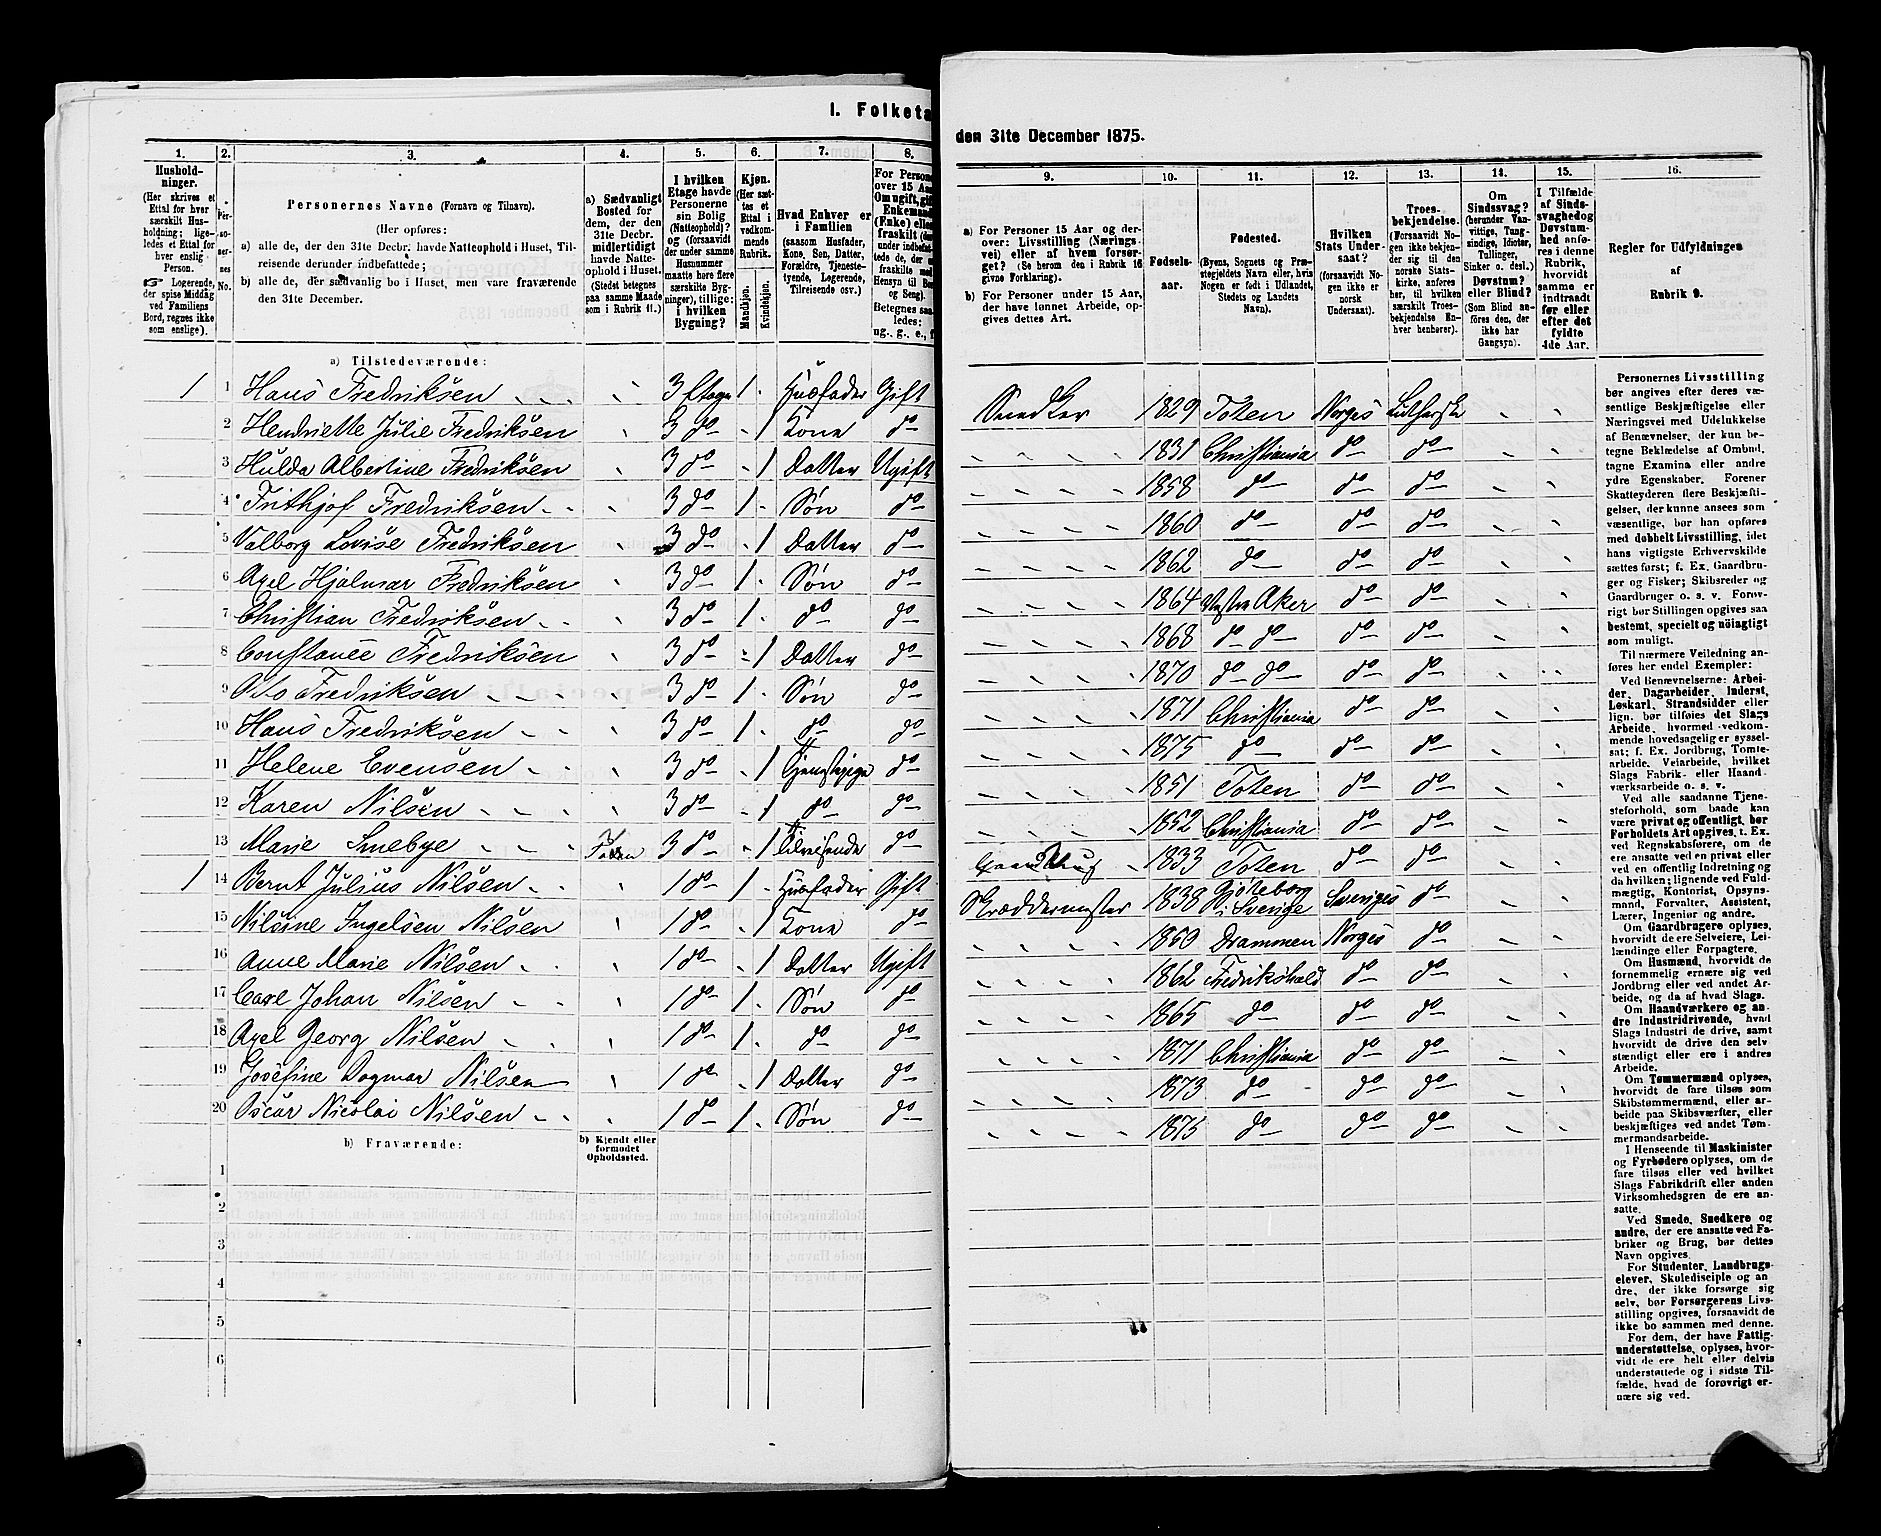 I. Folketæ
1.
2.
3.
4.
5.
6.
7.
8.
Hushold-
ninger.
(Her skrives et
Ettal for hver
særskilt Hus-
holdning; lige-
ledes et Ettal for
hver enslig
Person.
☞ Logerende,
der spise Middag
ved Familiens
Bord, regnes ikke
som enslige).
Per-
so-
ner-
nes
No.
Personernes Navne (Fornavn og Tilnavn).
(Her opføres:
a) alle de, der den 31te Decbr. havde Natteophold i Huset, Til-
reisende derunder indbefattede;
b) alle de, der sædvanlig bo i Huset, men vare fraværende
den 31te December.
a) Sædvanligt
Bosted for
dem, der den
31te Decbr.
midlertidigt
havde Natte-
ophold i Huset.
(Stedet betegnes
paa samme Maade
som i Rubrik 11.)
I hvilken
Etage havde
Personerne
sin Bolig
(Natteophold)?
og (forsaavidt
der under samme
Husnummer
maatte høre flere
særskilte Byg-
ninger), tillige:
i hvilken
Bygning?
Kjøn.
(Her sæt-
tes et
Ettal i
vedkom-
mende
Rubrik.)
Mandkjøn.
Kvindekjøn.
Hvad Enhver er
i Familien
(saasom Husfader,
Kone, Søn, Datter,
Forældre, Tjeneste-
tyende, Logerende,
Tilreisende osv.)
For Persone
over 15 Aar
Om ugift, gif
Enkemand
(Enke) elle
fraskilt
a) Tilstedeværende:
1 1 Hans Fredriksen 3 Etage 1 Husfader Gift
2 Hendriette Julie Fredriksen 3 do 1 Kone do
3 Hulda Albertine Fredriksen 3 do 1 Datter Ugift
4 Frithjof Fredriksen 3 do 1 Søn do
5 Valborg Lovise Fredriksen 3 do 1 Datter do
6 Axel Hjalmar Fredriksen 3 do 1 Søn do
7 Christian Fredriksen 3 do 1 do do
8 Constance Fredriksen 3 do 1 Datter do
9 Otto Fredriksen 3 do 1 Søn do
10 Hans Fredriksen 3 do 1 do do
11 Helene Evensen 3 do 1 Tjenstepige do
12 Karen Nilsen 3 do 1 do do
13 Marie Smebye Toten 3 do 1 Tilreisende do
1 14 Bernt Julius Nilsen 1 do 1 Husfader Gift
15 Nilsine Ingelsen Nilsen 1 do 1 Kone do
16 Anne Marie Nilsen 1 do 1 Datter Ugift
17 Carl Johan Nilsen 1 do 1 Søn do
18 Axel Georg Nilsen 1 do 1 do do
19 Josefine Dagmar Nilsen 1 do 1 Datter do
20 Oscar Nicolai Nilsen 1 do 1 Søn do
b) Fraværende:
b) Kjendt eller
formodet
Opholdssted.
1
2
3
4
5
6
den 31te December 1875.
9.
10.
11.
12.
13.
14.
15.
16.
a) For Personer 15 Aar og der-
over: Livsstilling (Nærings-
vei) eller af hvem forsør-
get? (Se herom den i Rubrik 16
givne Forklaring).
b) For Personer under 15 Aar,
der have lønnet Arbeide, op-
gives dettes Art.
Fødsels-
aar.
Fødested.
(Byens, Sognets og Præ-
stegjeldets Navn eller, hvis
Nogen er født i Udlandet,
Stedets og Landets
Navn).
Hvilken
Stats Under-
saat?
(forsaavidt No-
gen ikke er
norsk
Undersaat).
Troes-
bekjendelse.
(Forsaavidt No-
gen ikke bekjen-
der sig til den
norske Stats-
kirke, anføres
her, til hvilken
særskilt Troes-
bekjendelse En-
hver henhører).
Om
Sindssvag?
(herunder Van-
vittige, Tung-
sindige, Idioter,
Tullinger,
Sinker o. desl.)
Døvstum?
eller Blind?
(Som Blind an-
føres den, der
ikke har
Gangsyn).
I Tilfælde
af Sinds-
svaghed og
Døvstum-
hed anfø-
res i denne
Rubrik,
hvorvidt
samme er
indtraadt
før eller
efter det
fyldte
4de Aar.
Regler for Udfyldningen
af
Rubrik 9.
Snedker 1829 Toten Norges Lutherske
1831 Christiania do do
1858 do do do
1860 do do do
1862 do do do
1864 Vestre Aker do do
1868 do do do do
1870 do do do do
1871 Christiania do do
1875 do do do
1851 Toten do do
1852 Christiania do do
1833 Toten do do
Skræddermester 1838 Gøteborg i Sverige Sveriges do
1850 Drammen Norges do
1862 Fredrikshald do do
1865 do do do
1871 Christiania do do
1873 do do do
1875 do do do
Personernes Livsstilling
bør angives efter deres væ-
sentlige Beskjæftigelse eller
Næringsvei med Udelukkelse
af Benævnelser, der kun be-
tegne Beklædelse af Ombud,
tagne Examina eller andre
ydre Egenskaber. Forener
Skatteyderen flere Beskjæfti-
gelser, der kunne ansees som
væsentlige, bør han opføres
med dobbelt Livsstilling, idet
hans vigtigste Erhvervskilde
sættes først; f. Ex. Gaardbru-
ger og Fisker; Skibsreder og
Gaardbruger o. s. v. Forøv-
rigt bør Stillingen opgives saa
bestemt, specielt og nøiagtigt
som muligt.
Til nærmere Veiledning an-
føres her endel Exempler:
Ved Benævnelserne: Arbei-
der, Dagarbeider, Inderst,
Løskarl, Strandsidder eller
lign. bør tilføies det Slags
Arbeide, hvormed vedkom-
mende hovedsagelig er syssel-
sat; f. Ex. Jordbrug, Tomte-
arbeide, Veiarbeide, hvilket
Slags Fabrik- eller Haand-
værksarbeide o. s. v.
Ved alle saadanne Tjene-
steforhold, som baade kan
være privat og offentligt, bør
Forholdets Art opgives, t. Ex.
ved Regnskabsførere, om de
ere ansatte ved en privat eller
ved en offentlig Indretning og
da hvilken; lignende ved Fuld-
mægtig, Kontorist, Opsyns-
mand, Forvalter, Assistent,
Lærer, Ingeniør og andre.
Om Gaardbrugere oplyses,
hvorvidt de ere Selveiere, Lei-
lændinge eller Forpagtere.
Om Husmænd, hvorvidt de
fornemmelig ernære sig ved
Jordbrug eller ved andet Ar-
beide, og da af hvad Slags.
Om Haandværkere og an-
dre Industridrivende, hvad
Slags Industri de drive, samt
hvorvidt de drive den selv-
stændigt eller ere i andres
Arbeide.
Om Tømmermænd oplyses,
hvorvidt de fare tilsøs som
Skibstømmermænd, eller ar-
beide paa Skibsværfter, eller
beskjæftiges ved andet Tøm-
mermandsarbeide.
I Henseende til Maskinister
og Fyrbødere oplyses, om de
fare tilsøs eller ved hvilket
Slags Fabrikdrift eller anden
Virksomhedsgren de ere an-
satte.
Ved Smede, Snedkere og
andre, der ere ansatte ved Fa-
briker og Brug, bør dettes
Navn opgives.
For Studenter, Landbrugs-
elever, Skoledisciple og an-
dre, der ikke forsørge sig
selv, bør Forsørgerens Livs-
stilling opgives, forsaavidt de
ikke bo sammen med denne.
For dem, der have Fattig-
understøttelse, oplyses, hvor-
vidt de ere helt eller delvis
understøttede og i sidste Til-
fælde, hvad de forøvrigt er-
nære sig ved.